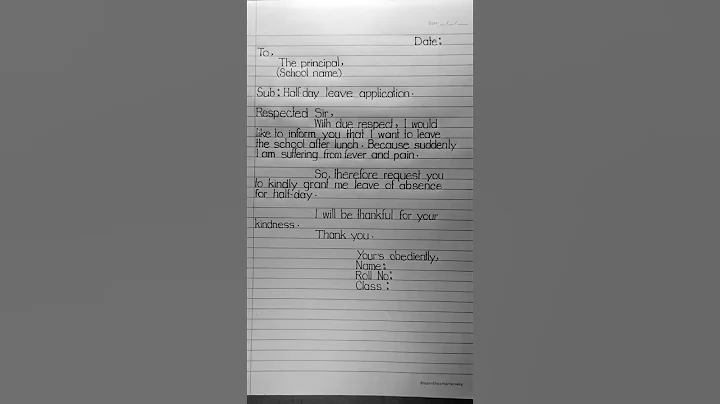 Date:
To,
The principal,
(School name)
Sub: Half day leave application.
Respected Sir,
With due respect, I would
like to inform you that I want to leave
the school after lunch. Because suddenly
I am suffering from fever and pain.
So, therefore request you
to kindly grant me leave of absence
for half-day.
I will be thankful for your
kindness.
Thank you.
Your's obediently,
Name:
Roll No:
Class :